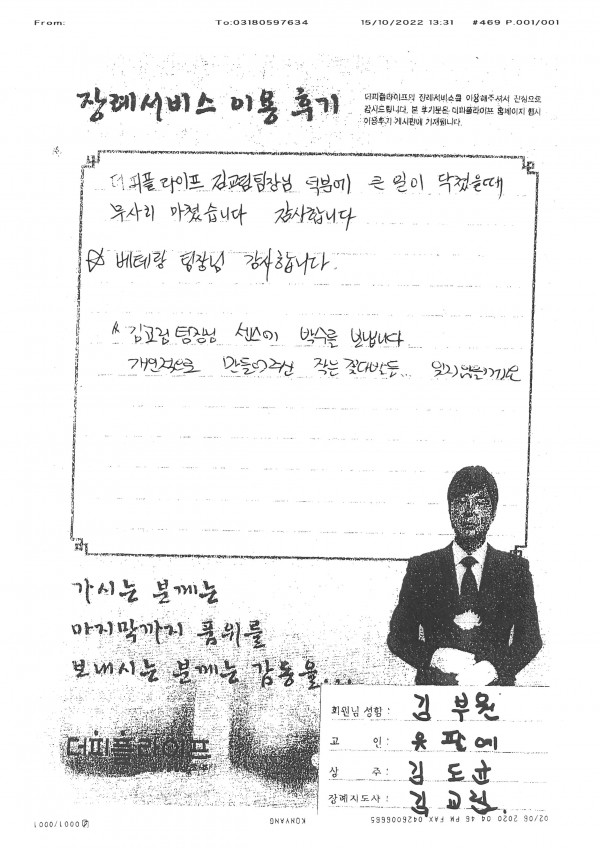 From: To:03180597634 15/10/2022 13:31 #469 P.001/001
장례서비스 이용 후기
더피플라이프의 장례서비스를 이용해주셔서 진심으로
감사드립니다. 본 후기문은 더피플라이프 홈페이지 행사
이용후기 게시판에 기재됩니다.
더피플라이프 김교림팀장님 덕분에 큰 일이 닥쳤을때
무사히 마쳤습니다 감사합니다
베테랑 팀장님 감사합니다.
김교림팀장님 센스에 박수를 보냅니다
개인적으로 만들어주신 작은 꽃다발도 잊지 않을게요
가시는 분께는
마지막까지 품위를
보내시는 분께는 감동을...
더피플라이프
회원님 성함 : 김부원
고 인 : 유판예
상 주 : 김도균
장례지도사 : 김교림
02/06 2020 04:46 PM FAX 0426006665
KONYANG
0001/0001